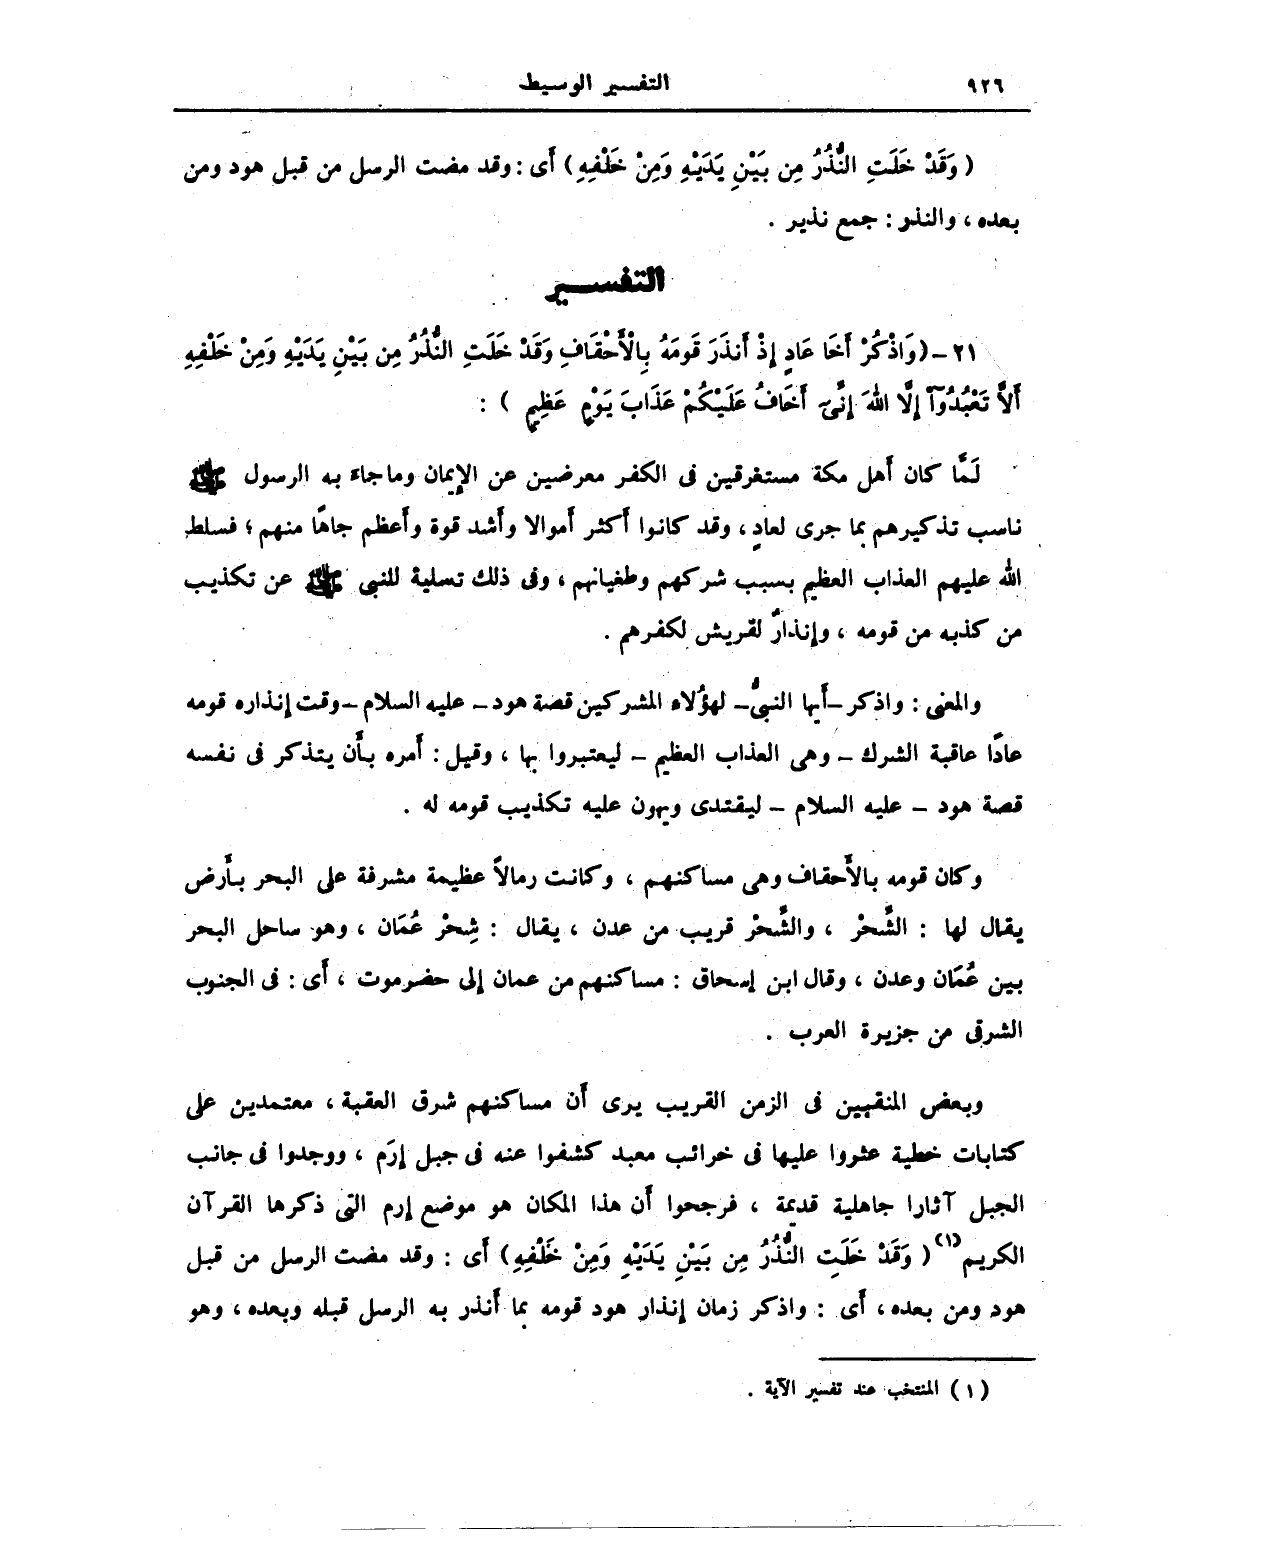 ٩٢٦
التفسير الوسيط
( وَقَدْ خَلَتِ النُّذُرُ مِن بَيْنِ يَدَيْهِ وَمِنْ خَلْفِهِ ) أَى : وقد مضت الرسل من قبل هود ومن
بعده ، والنذر : جمع نذير .
التفسير
٢١ – ( وَاذْكُرْ أَخَا عَادٍ إِذْ أَنذَرَ قَومَهُ بِالْأَحْقَافِ وَقَدْ خَلَتِ النُّذُرُ مِن بَيْنِ يَدَيْهِ وَمِنْ خَلْفِهِ
أَلاَّ تَعْبُدُوآ إِلَّا اللهَ إِنِّىٓ أَخَافُ عَلَيْكُمْ عَذَابَ يَوْمٍ عَظِيمٍ ) :
لَمَّا كان أَهل مكة مستغرقين فى الكفر معرضين عن الإيمان وماجاءَ به الرسول ﷺ
ناسب تذكيرهم بما جرى لعادٍ ، وقد كانوا أَكثر أَموالا وأَشد قوة وأَعظم جاهًا منهم ؛ فسلط
الله عليهم العذاب العظيم بسبب شركهم وطغيانهم ، وفى ذلك تسلية للنبى ﷺ عن تكذيب
من كذبه من قومه ، وإنذارٌ لقريش لكفرهم .
والمعنى : واذكر – أَيها النبىُّ – لهؤلاء المشركين قصة هود – عليه السلام – وقت إنذاره قومه
عادًا عاقبة الشرك – وهى العذاب العظيم – ليعتبروا بها ، وقيل : أَمره بأَن يتذكر فى نفسه
قصة هود – عليه السلام – ليقتدى ويهون عليه تكذيب قومه له .
وكان قومه بالأَحقاف وهى مساكنهم ، وكانت رمالاً عظيمة مشرفة على البحر بأَرض
يقال لها : الشِّحْر ، والشِّحْر قريب من عدن ، يقال : شِحْر عُمَان ، وهو ساحل البحر
بين عُمَان وعدن ، وقال ابن إسحاق : مساكنهم من عمان إلى حضرموت ، أَى : فى الجنوب
الشرقى من جزيرة العرب .
وبعض المنقبين فى الزمن القريب يرى أَن مساكنهم شرق العقبة ، معتمدين على
كتابات خطية عثروا عليها فى خرائب معبد كشفوا عنه فى جبل إرَم ، ووجدوا فى جانب
الجبل آثارا جاهلية قديمة ، فرجحوا أَن هذا المكان هو موضع إرم التى ذكرها القرآن
الكريم (١) ( وَقَدْ خَلَتِ النُّذُرُ مِن بَيْنِ يَدَيْهِ وَمِنْ خَلْفِهِ ) أَى : وقد مضت الرسل من قبل
هود ومن بعده ، أَى : واذكر زمان إنذار هود قومه بما أَنذر به الرسل قبله وبعده ، وهو
( ١ ) المنتخب عند تفسير الآية .